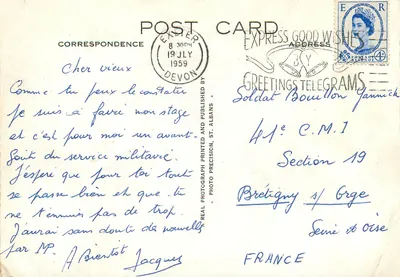 POST CARD
CORRESPONDENCE
ADDRESS
EXETER
8 30PM
19 JLY
1959
DEVON
EXPRESS GOOD WISHES
BY
GREETINGS TELEGRAMS
E R
POSTAGE
4D
Cher vieux
Comme tu peux le constater
je suis à faire mon stage
et c'est pour moi un avant-
goût du service militaire.
J'espère que pour toi tout
se passe bien et que tu
ne t'ennuies pas de trop.
J'aurai sans doute de nouvelles
par MP. A Bientôt
Jacques
REAL PHOTOGRAPH PRINTED AND PUBLISHED BY
PHOTO PRECISION, ST. ALBANS
Soldat Bouillon Yannick
41e C.M.I
Section 19
Brétigny s/ Orge
Seine et Oise
FRANCE